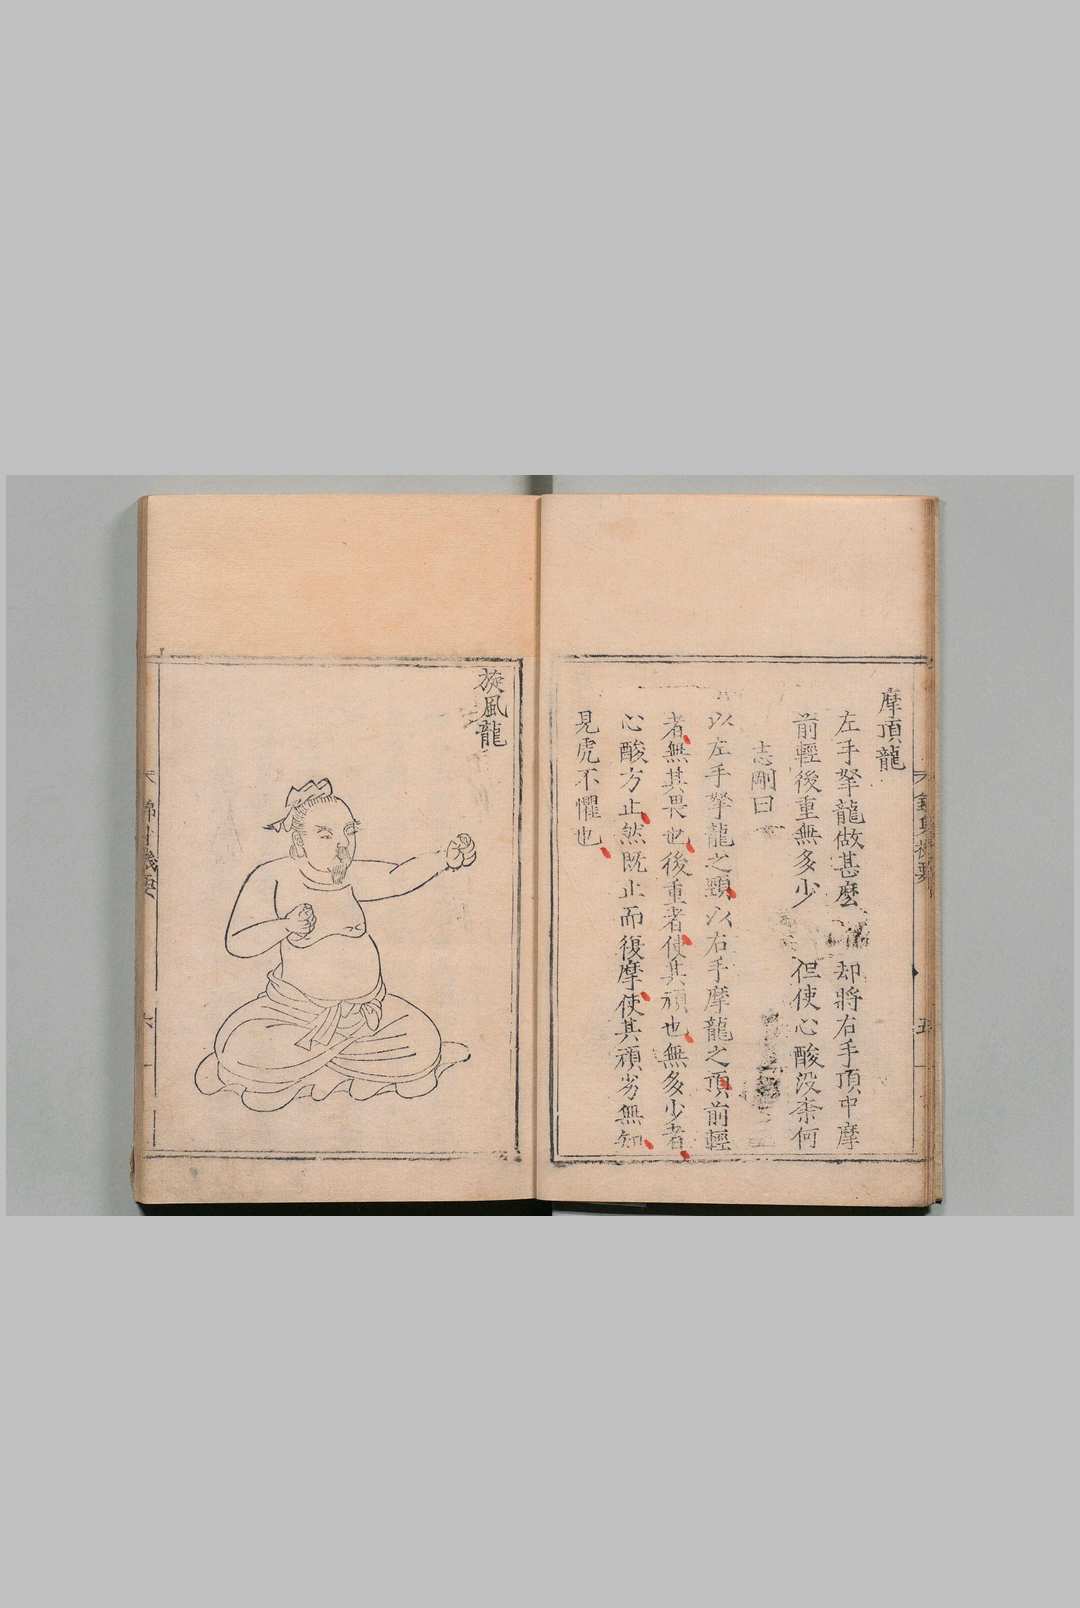 摩頂龍
左手拏龍做甚麽
却將右手頂中摩
前輕後重無多少
但使心酸没柰何
志剛曰
以左手拏龍之頸以右手摩龍之頂前輕
者無其畏也後重者使其頑也無多少者
心酸方止然既止而復摩使其頑劣無知
見虎不懼也
五
旋風龍
錦身機要
六